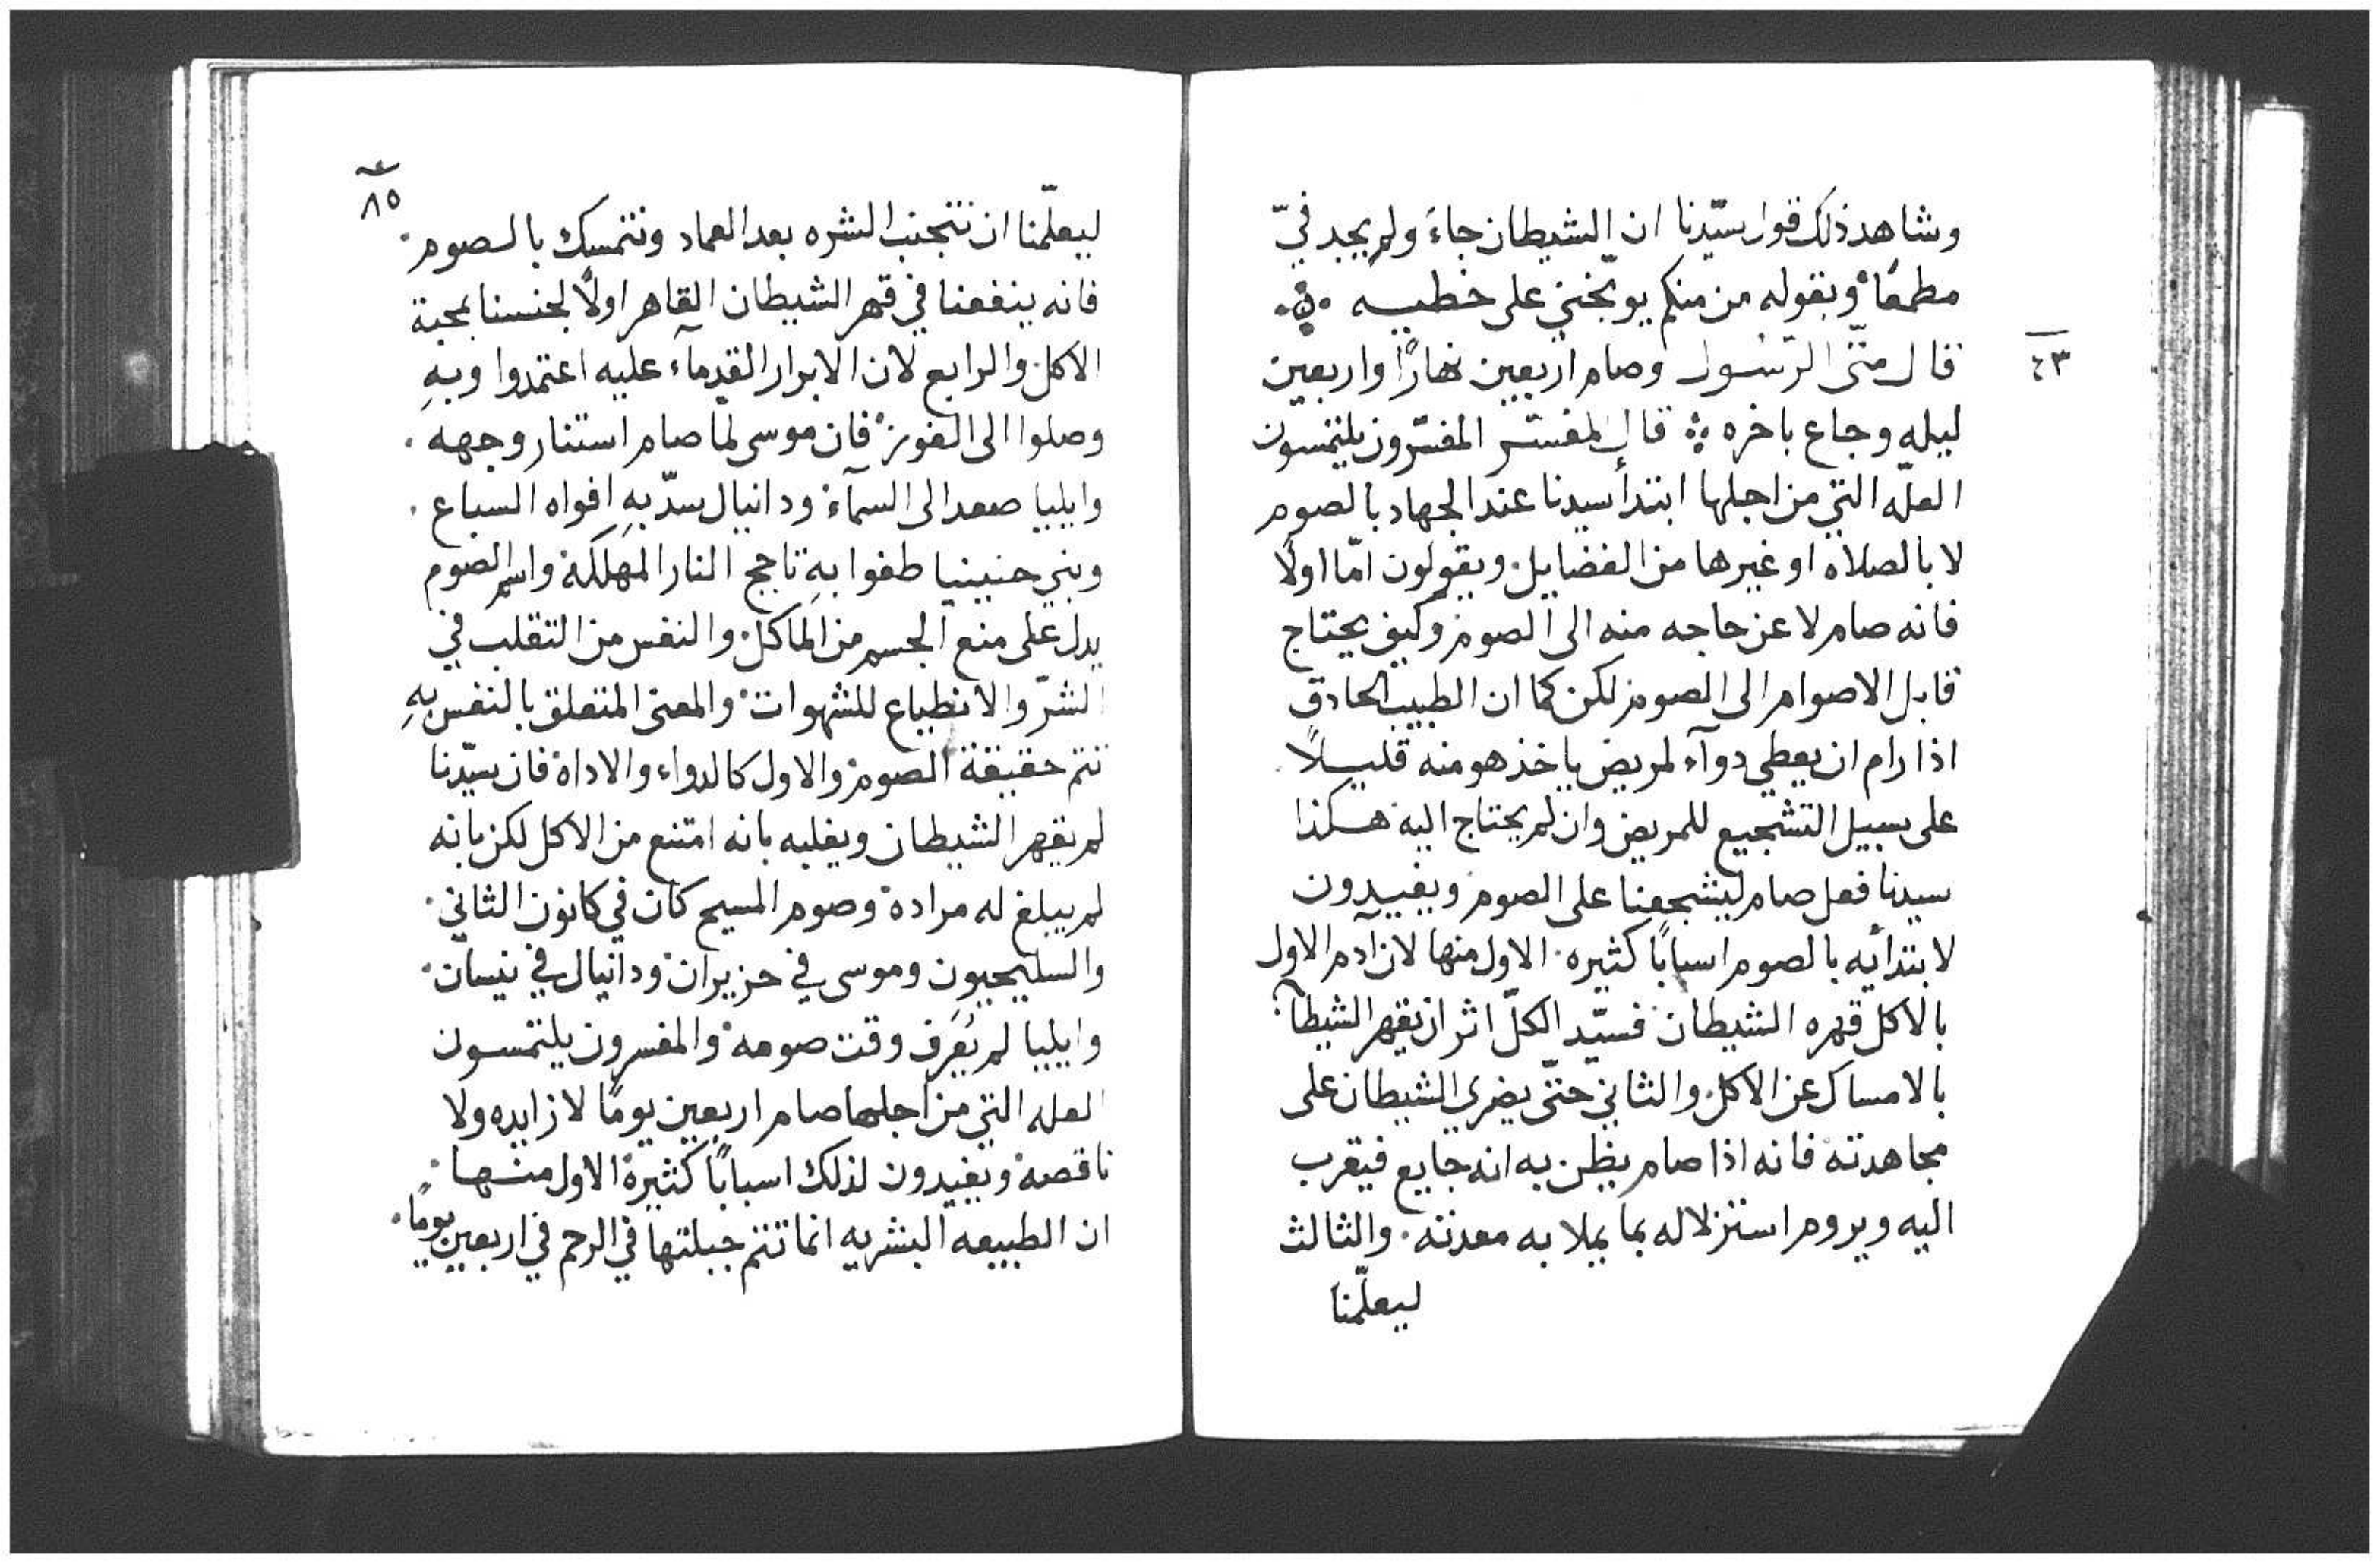 وشاهد ذلك قول سيّدنا ان الشيطان جاءَ ولم يجد فيّ
مطمعًا وبقوله من منكم يوبّخني على خطيه
٤٣
قال متّى الرّسول وصام اربعين نهارًا واربعين
ليله وجاع باخره قال المفسّر المفسّرون يلتمسون
العلّه التي من اجلها ابتدأ سيدنا عند الجهاد بالصوم
لا بالصلاه او غيرها من الفضايل ويقولون امّا اولًا
فانه صام لا عن حاجه منه الى الصوم وكيف يحتاج
قابل الاصوام الى الصوم لكن كما ان الطبيب الحادق
اذا رام ان يعطي دوآء لمريض ياخذ هو منه قليلًا
على سبيل التشجيع للمريض وان لم يحتاج اليه هكذا
سيدنا فعل صام ليشجعنا على الصوم ويفيدون
لابتدأيه بالصوم اسبابًا كثيره الاول منها لان آدم الاول
بالاكل قهره الشيطان فسيّد الكلّ اثر ان يقهر الشيطان
بالامساك عن الاكل والثاني حتّى يضري الشيطان على
مجاهدته فانه اذا صام يظن به انه جايع فيقرب
اليه ويروم استنزلاله بما يملا به معدته والثالث
ليعلّمنا
٨٥
ليعلّمنا ان نتجنب الشره بعد العماد ونتمسك بالصوم
فانه ينفعنا في قهر الشيطان القاهر اولًا لجنسنا بمحبة
الاكل والرابع لان الابرار القدمآء عليه اعتمدوا وبهِ
وصلوا الى الفوز فان موسى لما صام استنار وجهه
وايليا صعد الى السمآء ودانيال سدّ بهِ افواه السباع
وبني حنينيا طفوا بهِ تاجج النار المهلكة واسم الصوم
يدل على منع الجسم من الماكل والنفس من التقلب في
الشرّ والانطباع للشهوات والمعنى المتعلق بالنفس بهِ
تتم حقيقة الصوم والاول كالدواء والاداة فان سيّدنا
لم يقهر الشيطان ويغلبه بانه امتنع من الاكل لكن بانه
لم يبلغ له مراده وصوم المسيح كان في كانون الثاني
والسليحيون وموسى في حزيران ودانيال في نيسان
وايليا لم يُعرَف وقت صومه والمفسرون يلتمسون
العله التي من اجلها صام اربعين يومًا لا زايده ولا
ناقصه ويفيدون لذلك اسبابًا كثيرة الاول منها
ان الطبيعه البشريه انما تتم جبلتها في الرحم في اربعين يومًا